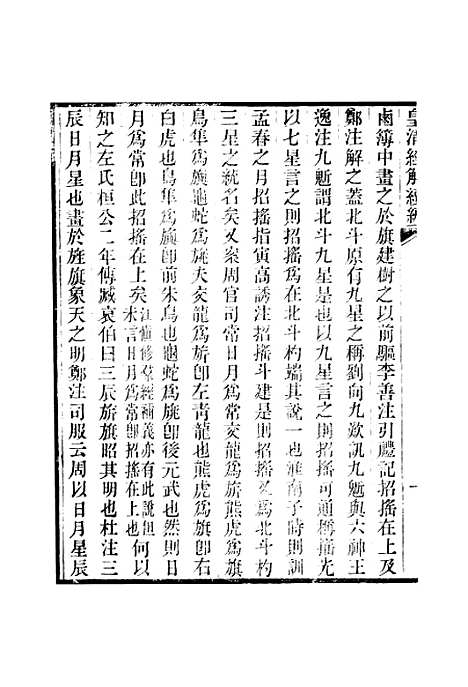 皇清經解續編
鹵簿中畫之於旗建樹之以前驅李善注引禮記招搖在上及
鄭注解之蓋北斗原有九星之稱劉向九歎訊九鬿與六神王
逸注九鬿謂北斗九星是也以九星言之則招搖可通稱搖光
以七星言之則招搖爲在北斗杓端其說一也淮南子時則訓
孟春之月招搖指寅高誘注招搖斗建是則招搖又爲北斗杓
三星之統名矣又案周官司常日月爲常交龍爲旂熊虎爲旗
鳥隼爲旟龜蛇爲旐夫交龍爲旂卽左靑龍也熊虎爲旗卽右
白虎也鳥隼爲旟卽前朱鳥也龜蛇爲旐卽後元武也然則日
月爲常卽此招搖在上矣江愼修羣經補義亦有此說但未言日月爲常卽招搖在上也何以
知之左氏桓公二年傳臧哀伯曰三辰旂旗昭其明也杜注三
辰日月星也畫於旌旗象天之明鄭注司服云周以日月星辰